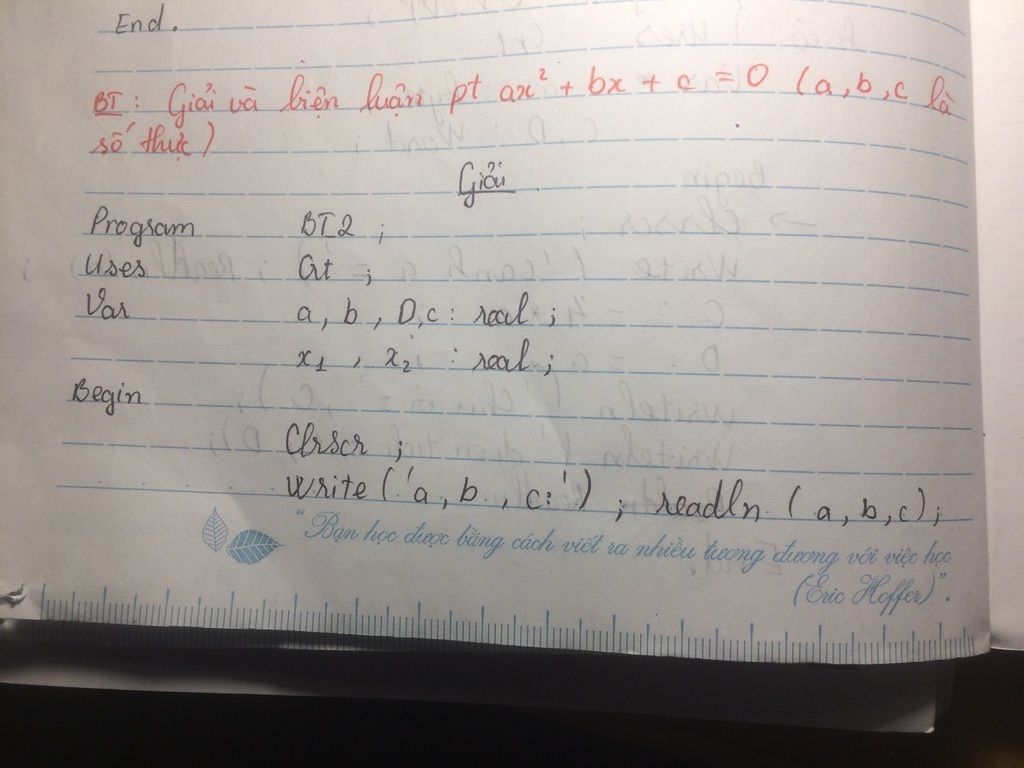 End.
BT : Giải và biện luận pt ax² + bx + c = 0 (a, b, c là
số thực)
Giải
Program BT2 ;
Uses Crt ;
Var a, b, D, c : real ;
x₁ , x₂ : real ;
Begin
Clrscr ;
Write ('a, b, c:') ; readln (a, b, c);
"Bạn học được bằng cách viết ra nhiều tương đương với việc học
(Eric Hoffer)".